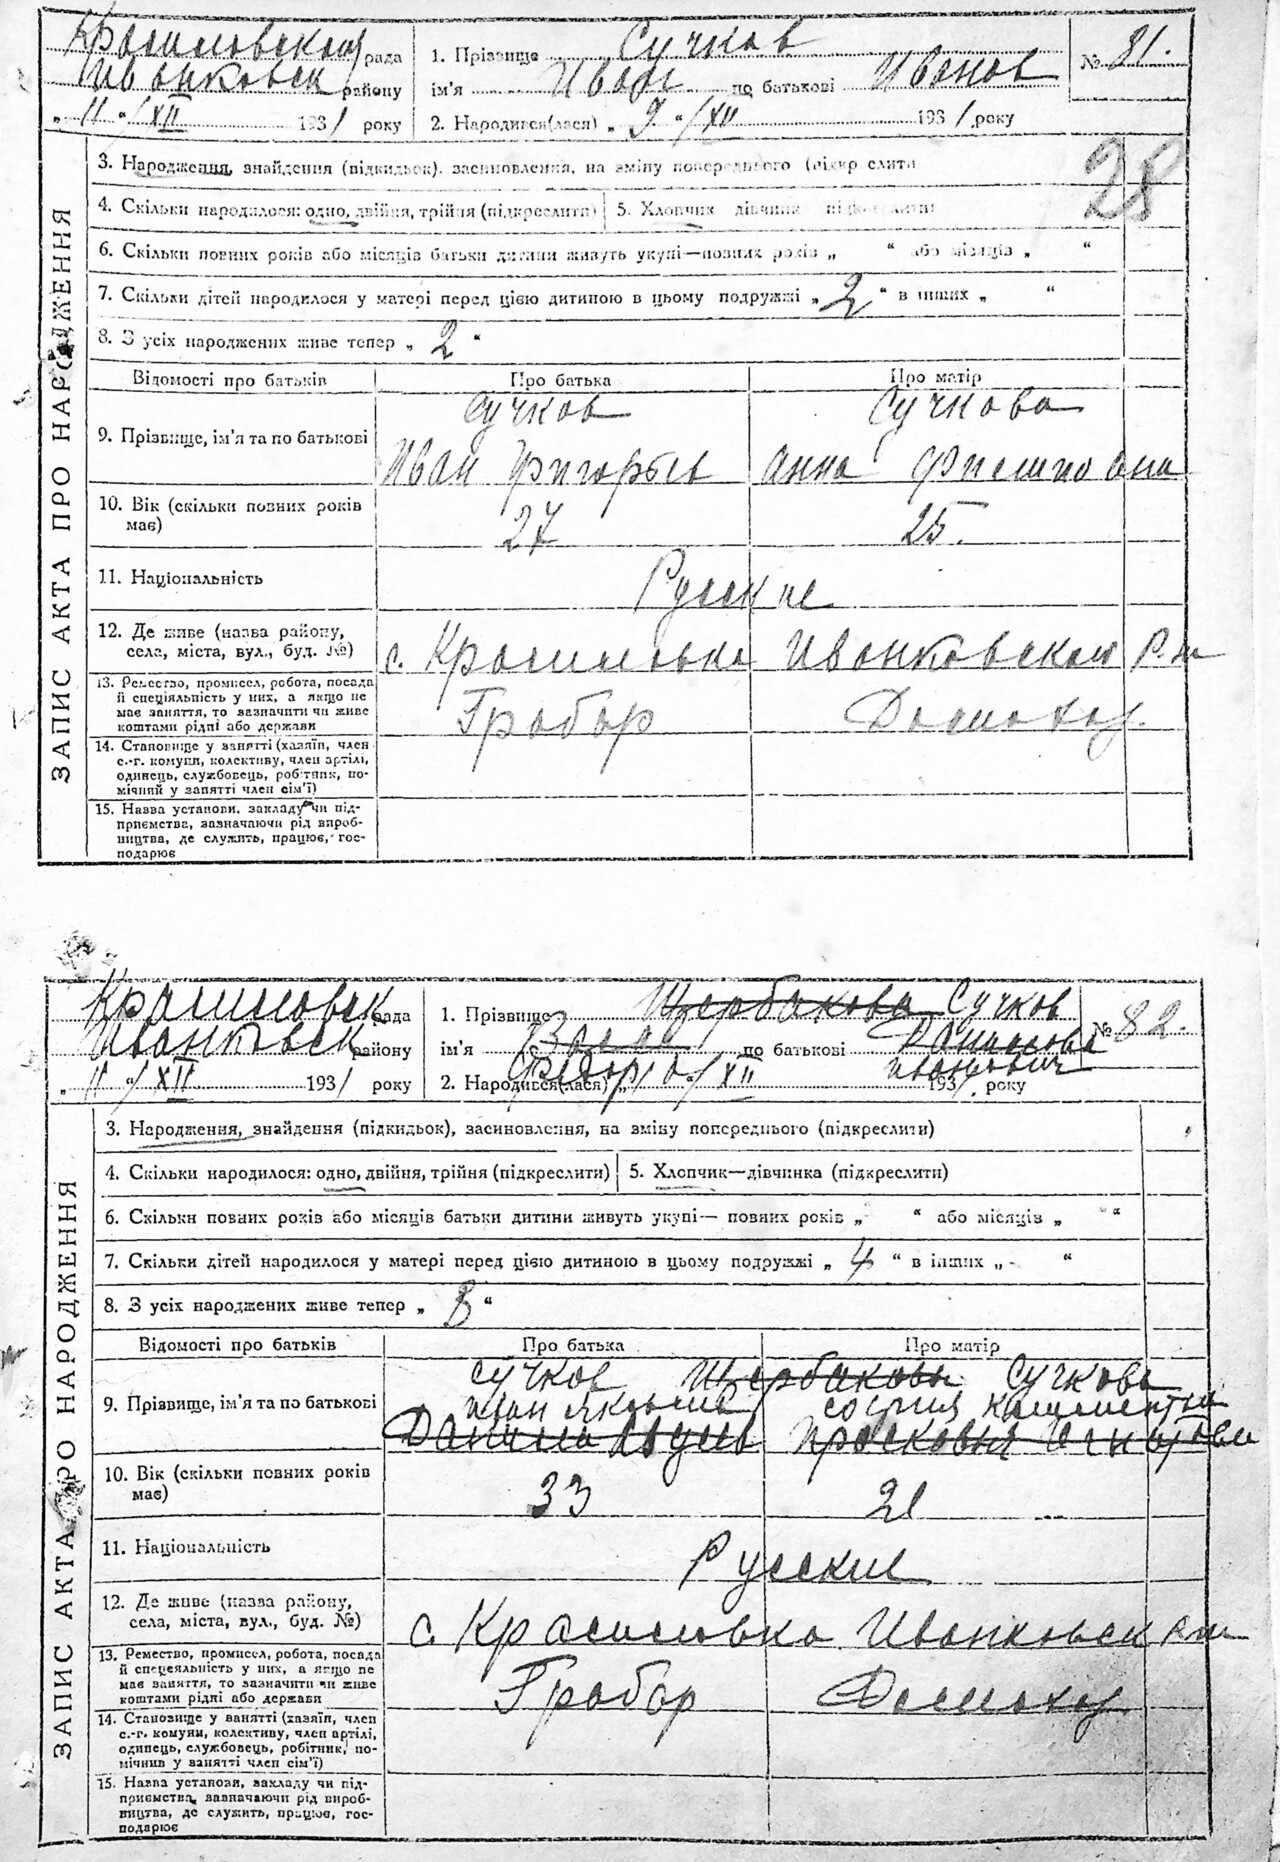 Красиловской рада
Иванковск району
„ 11 “ / XII 1931 року
1. Прізвище Сучков
ім'я Иван по батькові Иванов
2. Народився(лася) „ 9 “ / XII 1931 року
№ 81.
28
ЗАПИС АКТА ПРО НАРОДЖЕННЯ
3. Народження, знайдення (підкидьок), засиновлення, на зміну попереднього (підкреслити
4. Скільки народилося: одно, двійня, трійня (підкреслити) 5. Хлопчик дівчинка підкреслити
6. Скільки повних років або місяців батьки дитини живуть укупі—повних років „ “ або місяців „ “
7. Скільки дітей народилося у матері перед цією дитиною в цьому подружжі „ 2 “ в інших „ “
8. З усіх народжених живе тепер „ 2 “
Відомості про батьків Про батька Про матір
Сучков Сучкова
9. Прізвище, ім'я та по батькові
Иван Анна
10. Вік (скільки повних років
має) 27 25.
11. Національність Русские
12. Де живе (назва району,
села, міста, вул., буд. №) с. Красиловка Иванковском р-ну
13. Ремество, промисел, робота, посада
й спеціяльність у них, а якщо не
має заняття, то зазначити чи живе
коштами рідні або держави
Грабар Домохоз.
14. Становище у занятті (хазяїн, член
с.-г. комуни, колективу, член артілі,
одинець, службовець, робітник, по-
мічний у занятті член сім'ї)
15. Назва установи, закладу чи під-
приємства, зазначаючи рід вироб-
ництва, де служить, працює, гос-
подарює
Красиловск рада
Иванковск району
„ 11 “ / XII 1931 року
1. Прізвище Щербакова Сучков
ім'я по батькові Данилова
Федор Иванович
2. Народився(лася) „ 10 “ / XII 1931. року
№ 82.
ЗАПИС АКТА ПРО НАРОДЖЕННЯ
3. Народження, знайдення (підкидьок), засиновлення, на зміну попереднього (підкреслити)
4. Скільки народилося: одно, двійня, трійня (підкреслити) 5. Хлопчик—дівчинка (підкреслити)
6. Скільки повних років або місяців батьки дитини живуть укупі— повних років „ “ або місяців „ “
7. Скільки дітей народилося у матері перед цією дитиною в цьому подружжі „ 4 “ в інших „ “
8. З усіх народжених живе тепер „ “
Відомості про батьків Про батька Про матір
Сучков Щербакова Сучкова
9. Прізвище, ім'я та по батькові Иван София
Данила Прасковья
10. Вік (скільки повних років
має) 33 21
11. Національність Русские
12. Де живе (назва району,
села, міста, вул., буд. №) с. Красиловка Иванковск р-ну
13. Ремество, промисел, робота, посада
й спецеяльність у них, а якщо не
має заняття, то зазначити чи живе
коштами рідні або держави
Грабар Домохоз.
14. Становище у занятті (хазяїн, член
с.-г. комуни, колективу, член артілі,
одинець, службовець, робітник, по-
мічний у занятті член сім'ї)
15. Назва установи, закладу чи під-
приємства, зазначаючи рід вироб-
ництва, де служить, працює, гос-
подарює